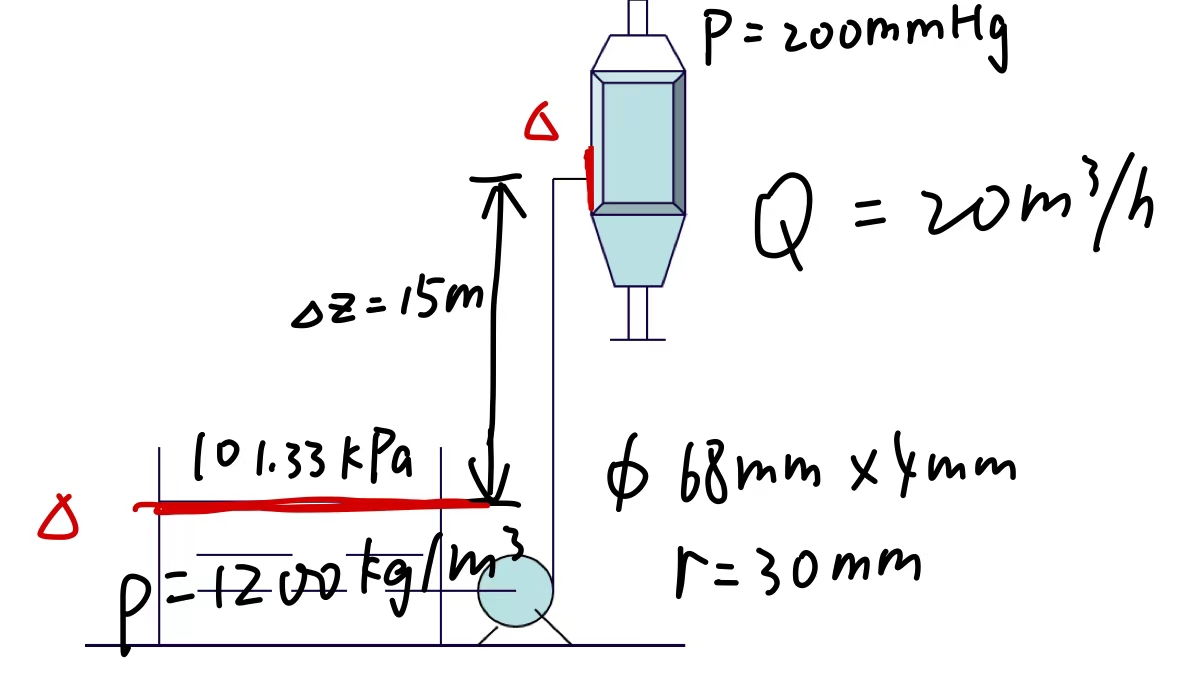 P = 200mmHg
Q = 20m³/h
Δz = 15m
101.33kPa
ϕ 68mm × 4mm
ρ = 1200kg/m³
r = 30mm